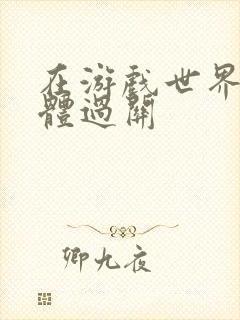 在游戏世界
體過關
卿九夜